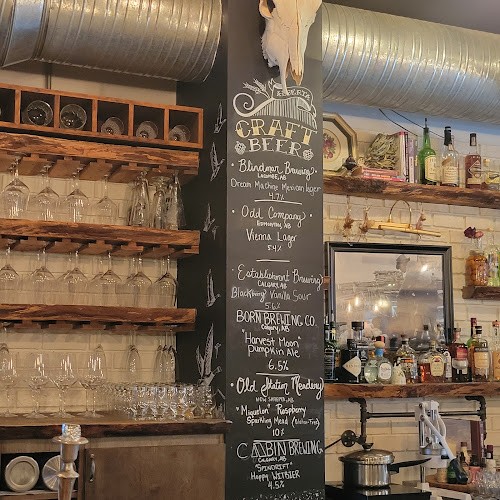 ALBERTA
CRAFT
BEER
Blindman Brewing
LACOMBE, AB
Dream Machine Mexican Lager
4.7%
Odd Company
EDMONTON, AB
Vienna Lager
5.4%
Establishment Brewing
CALGARY, AB
Blackberry Vanilla Sour
5.6%
BORN BREWING CO.
Calgary, AB
"Harvest Moon"
Pumpkin Ale
6.5%
Old Station Meadery
NEW SAREPTA, AB
"Miquelon" Raspberry
Sparkling Mead (Gluten-Free)
10%
CABIN BREWING
CALGARY, AB
"SPINDRIFT"
Hoppy WITBIER
4.5%